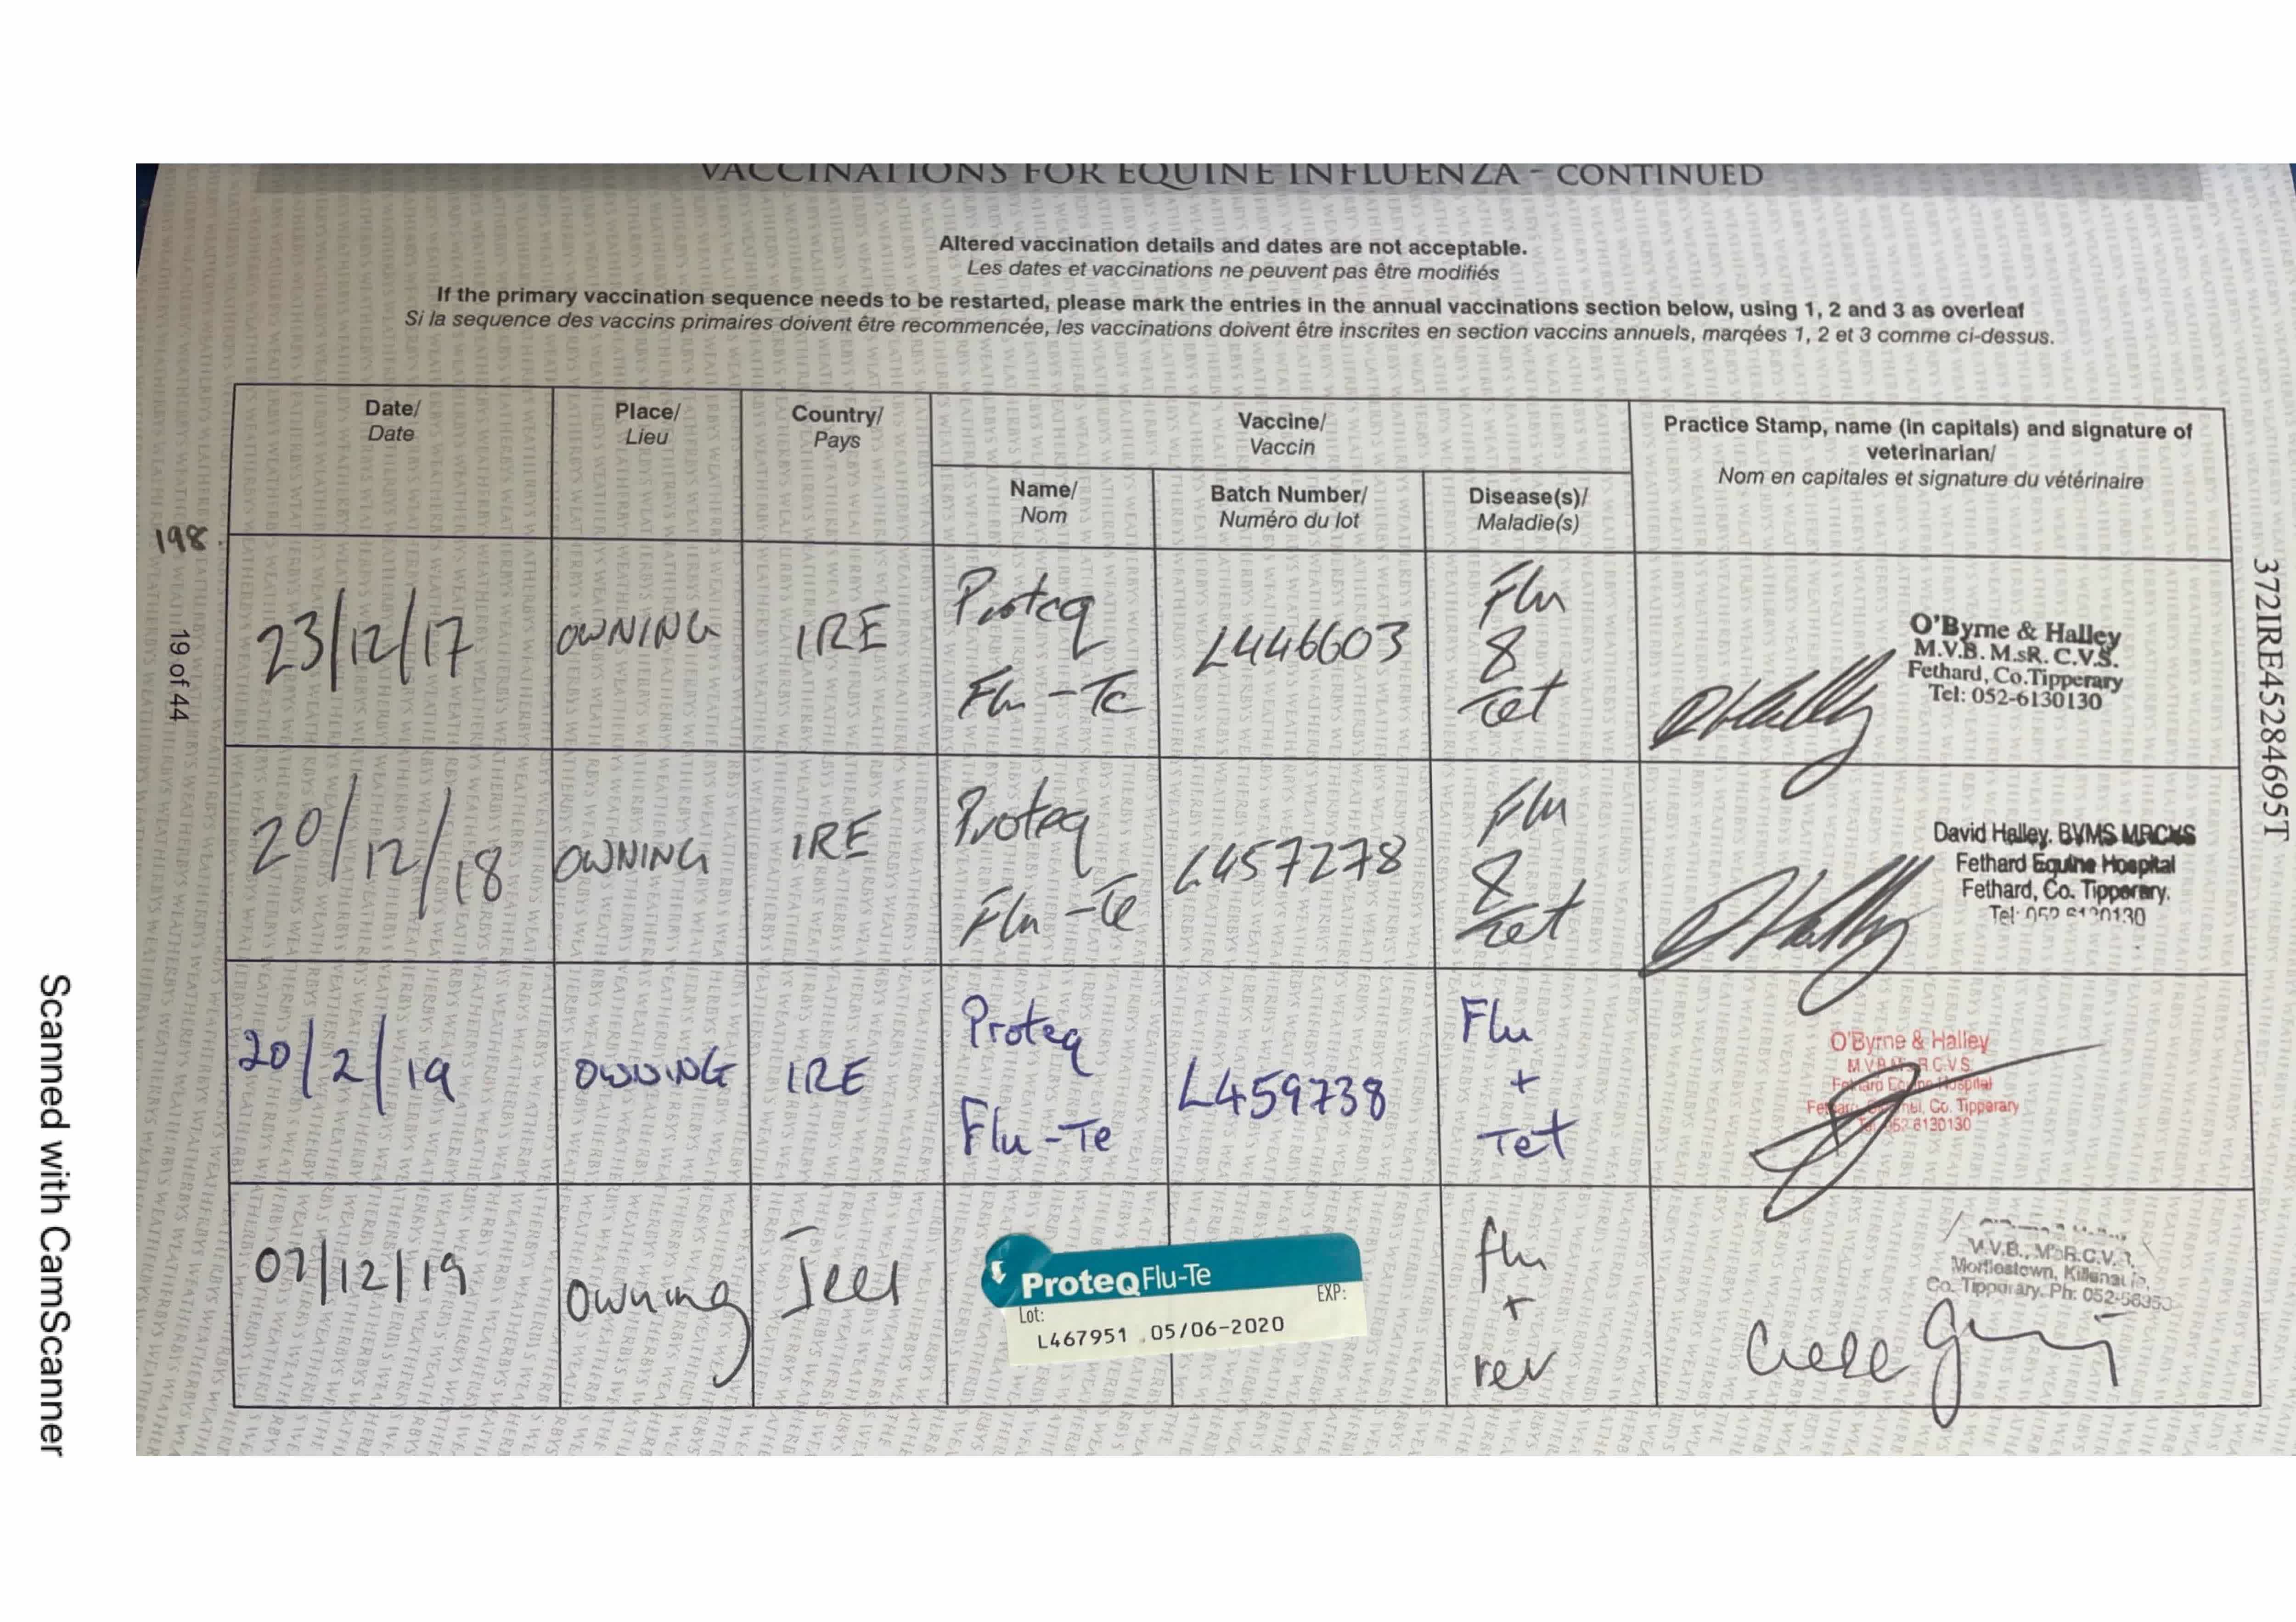 VACCINATIONS FOR EQUINE INFLUENZA - CONTINUED
Altered vaccination details and dates are not acceptable.
Les dates et vaccinations ne peuvent pas être modifiés
If the primary vaccination sequence needs to be restarted, please mark the entries in the annual vaccinations section below, using 1, 2 and 3 as overleaf
Si la sequence des vaccins primaires doivent être recommencée, les vaccinations doivent être inscrites en section vaccins annuels, marqées 1, 2 et 3 comme ci-dessus.
Date/
Date
Place/
Lieu
Country/
Pays
Vaccine/
Vaccin
Name/
Nom
Batch Number/
Numéro du lot
Disease(s)/
Maladie(s)
Practice Stamp, name (in capitals) and signature of
veterinarian/
Nom en capitales et signature du vétérinaire
198
19 of 44
372IRE45284695T
23/12/17
OWNING
IRE
Proteq
Flu-Te
L446603
Flu
&
Tet
O'Byrne & Halley
M.V.B. M.sR.C.V.S.
Fethard, Co.Tipperary
Tel: 052-6130130
20/12/18
OWNING
IRE
Proteq
Flu-Te
L457278
Flu
&
Tet
David Halley. BVMS MRCVS
Fethard Equine Hospital
Fethard, Co. Tipperary.
Tel: 052 6130130
20/2/19
OWNING
IRE
Proteq
Flu-Te
L459738
Flu
+
Tet
O'Byrne & Halley
Co. Tipperary
6130130
07/12/19
Owning
ProteqFlu-Te
Lot:
EXP:
L467951 05/06-2020
flu
+
M.V.B., MsR.C.V.S.
Mortlestown,
Co. Tipperary. Ph:
Scanned with CamScanner